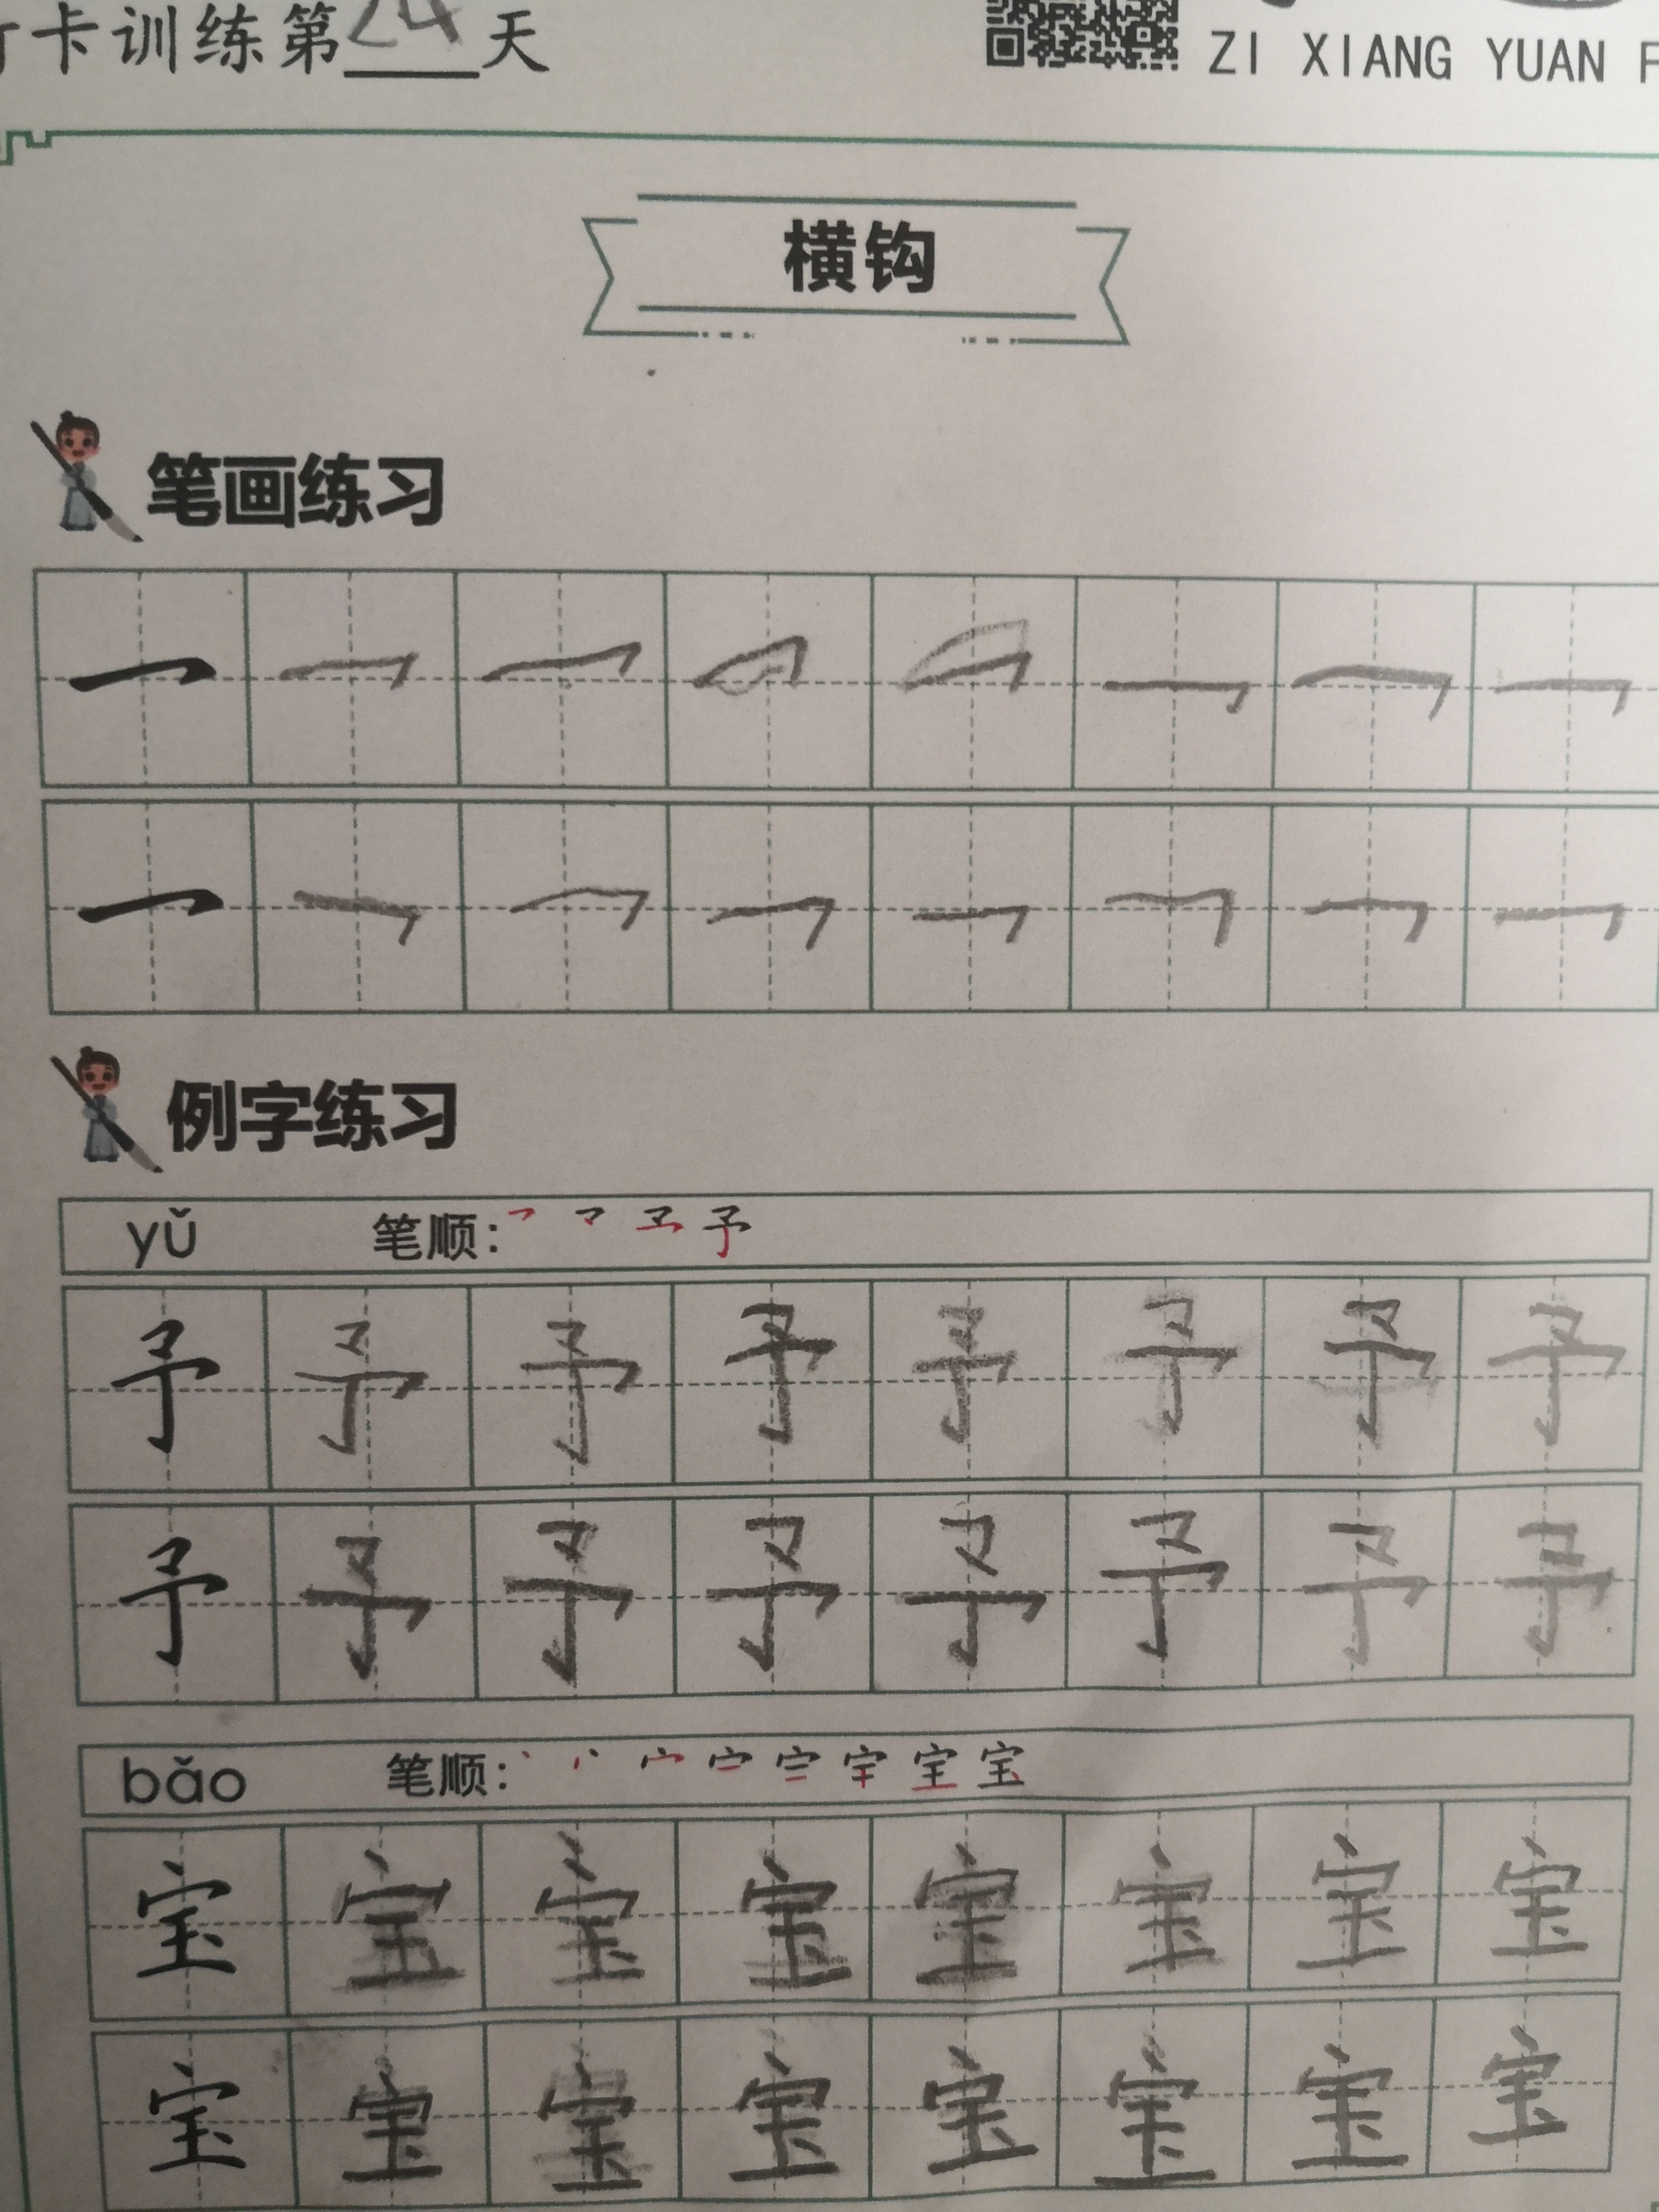 卡训练第24天
ZI XIANG YUAN
横钩
笔画练习
例字练习
yǔ 笔顺：
予 予 予 予 予 予 予 予
予 予 予 予 予 予 予 予
bǎo 笔顺： 丶 丷 宀 宝
宝 宝 宝 宝 宝 宝 宝 宝
宝 宝 宝 宝 宝 宝 宝 宝